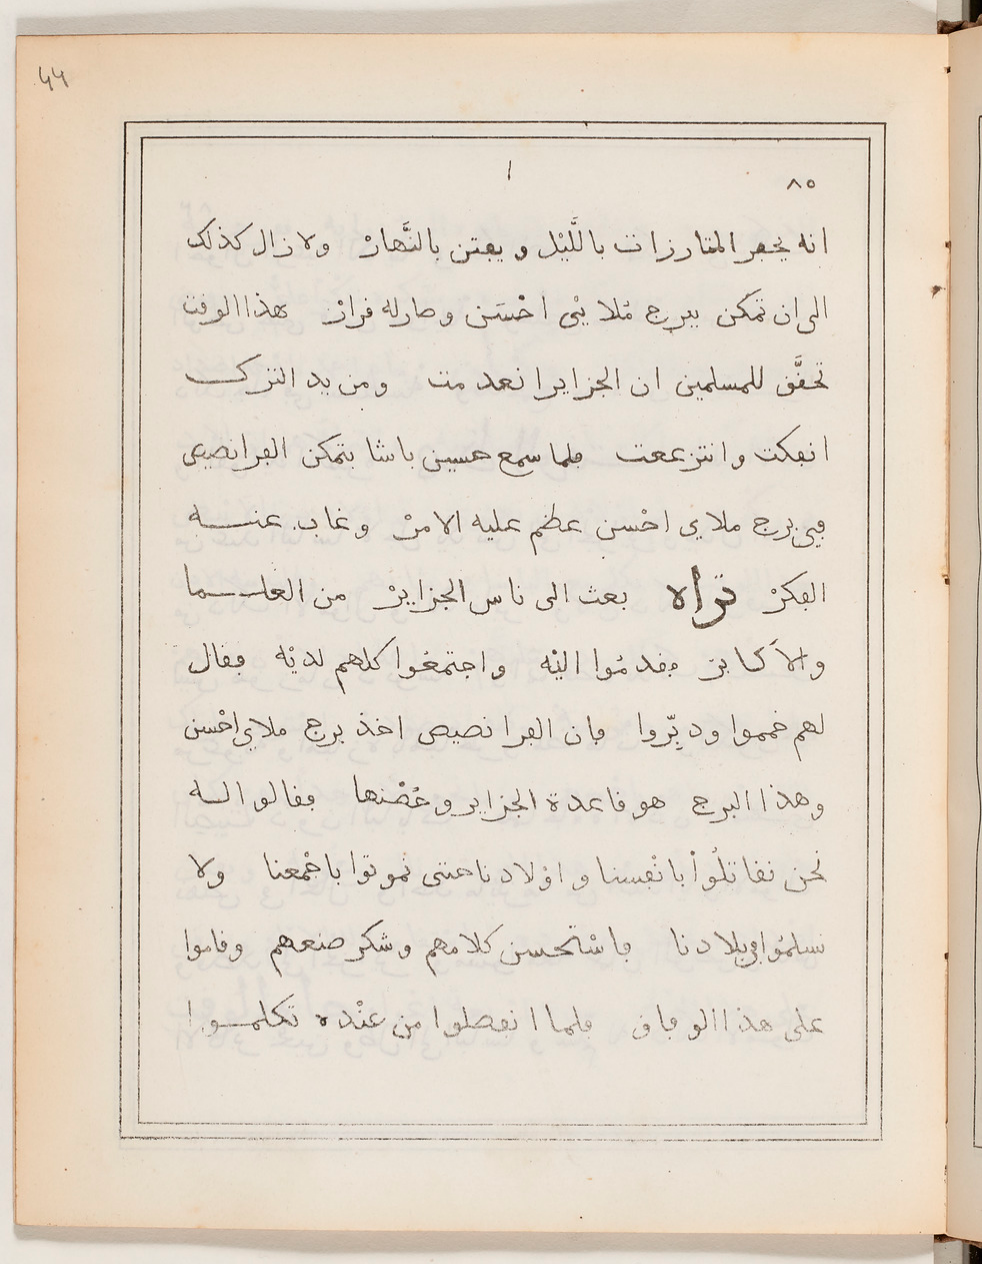 44
ا
٨٥
انه يحفر المتارزات بالَّليْل ويفتن بالنَّهارْ ولا زال كذلك
الى ان تمكن ببرج مُلايْى احْسَن وصارله قرارْ هذا الوقت
تحقَّق للمسلمين ان الجزاير انعدمت ومن يد الترك
انفكت وانتزعت فلما سمع حسين باشا بتمكن الفرانصيص
في برج ملاي احْسن عظم عليه الامرْ وغاب عنه
الفكرْ تراه بعث الى ناس الجزايرْ من العلما
والاكابر فقدمُوا اليْه واجتمعُوا كلهم لديْه فقال
لهم خمموا ودبِّروا فان الفرانصيص اخذ برج ملاي احْسن
وهذا البرج هو قاعدة الجزاير وحُصْنها فقالوا له
نحن نقاتلُواْ بانْفسنا واوْلادنا حتى نموتوا باجْمعنا ولا
نسلمُوا في بلادنا فاسْتحسن كلامهم وشكر صنعهم وقاموا
على هذا الوفاق فلما انفصلوا من عنْده تكلموا